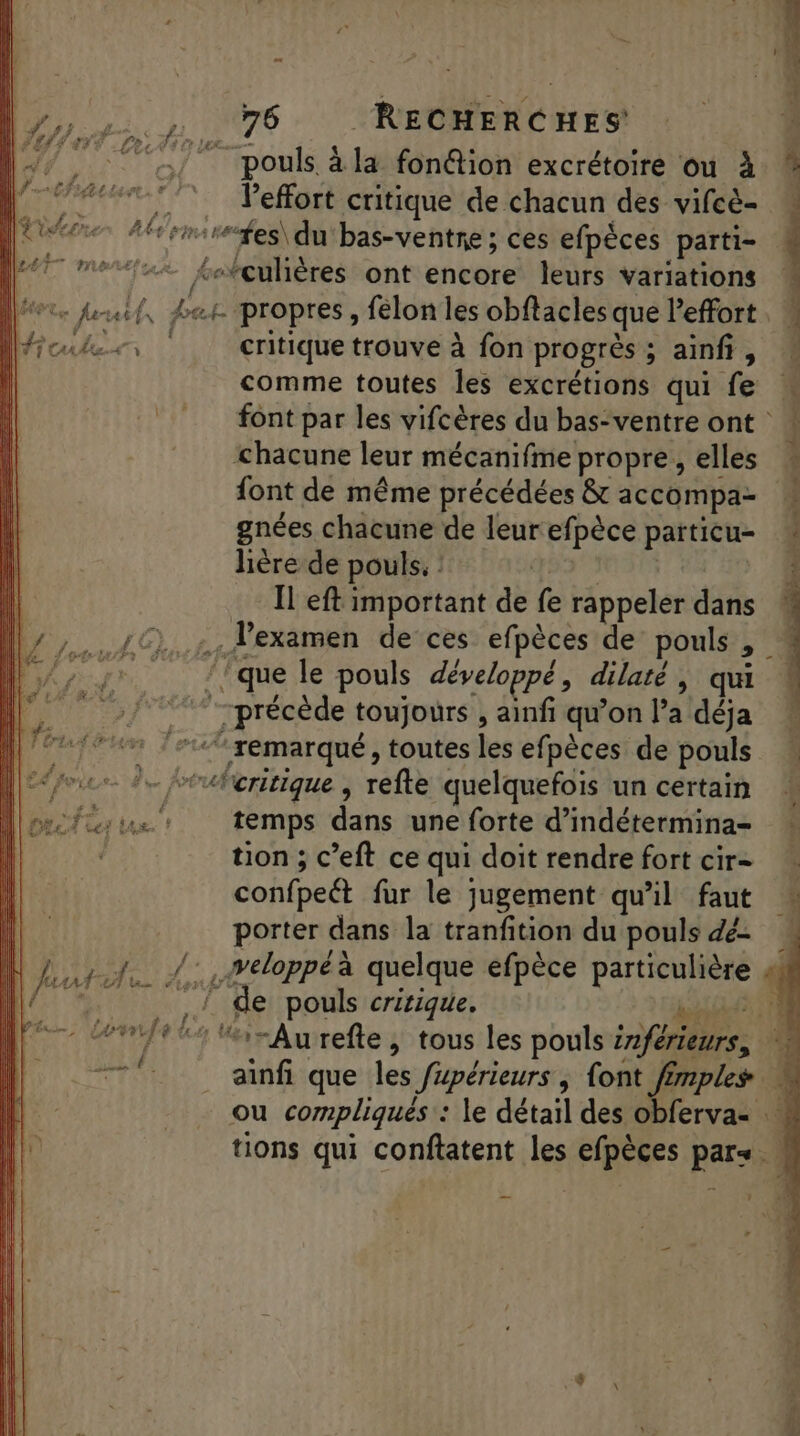 76 RECHERCHES
pouls à la fonction excrétoire ou à
l'effort critique de chacun des viſcè-
res du bas-ventre; ces eſpèces parti-
culières ont encore leurs variations
propres, ſelon les obſtacles que l'effort
critique trouve à ſon progrès; ainſi,
comme toutes les excrétions qui ſe
font par les viſcères du bas-ventre ont
chacune leur mécaniſme propre, elles
ſont de même précédées & accompa-
gnées chacune de leur eſpèce particu-
lière de pouls.
Il eſt important de ſe rappeler dans
l'examen de ces eſpèces de pouls,
que le pouls développé, dilaté, qui
précède toujours, ainſi qu'on l'a déja
remarqué, toutes les eſpèces de pouls
critique, reſte quelquefois un certain
temps dans une forte d'indétermina-
tion; c'eſt ce qui doit rendre fort cir-
conſpect ſur le jugement qu'il faut
porter dans la tranſition du pouls dé-
veloppé à quelque eſpèce particulière
de pouls critique.
Au reſte, tous les pouls inférieurs,
ainſi que les ſupérieurs, ſont ſimples
ou compliqués : le détail des obſerva-
tions qui conſtatent les eſpèces par-